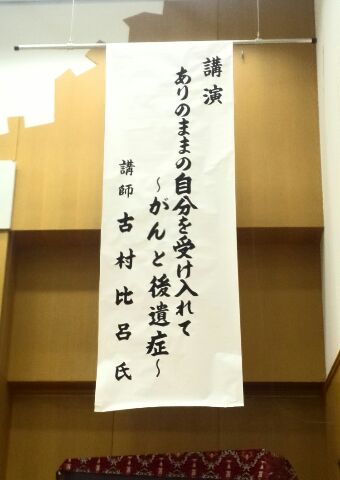 講演
ありのままの自分を受け入れて
～がんと後遺症～
講師 古村比呂氏